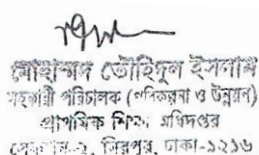 মোহাম্মদ তৌহিদুল ইসলাম
সহকারী পরিচালক (পরিকল্পনা ও উন্নয়ন)
প্রাথমিক শিক্ষা অধিদপ্তর
২, মিরপুর, ঢাকা-১২১৬